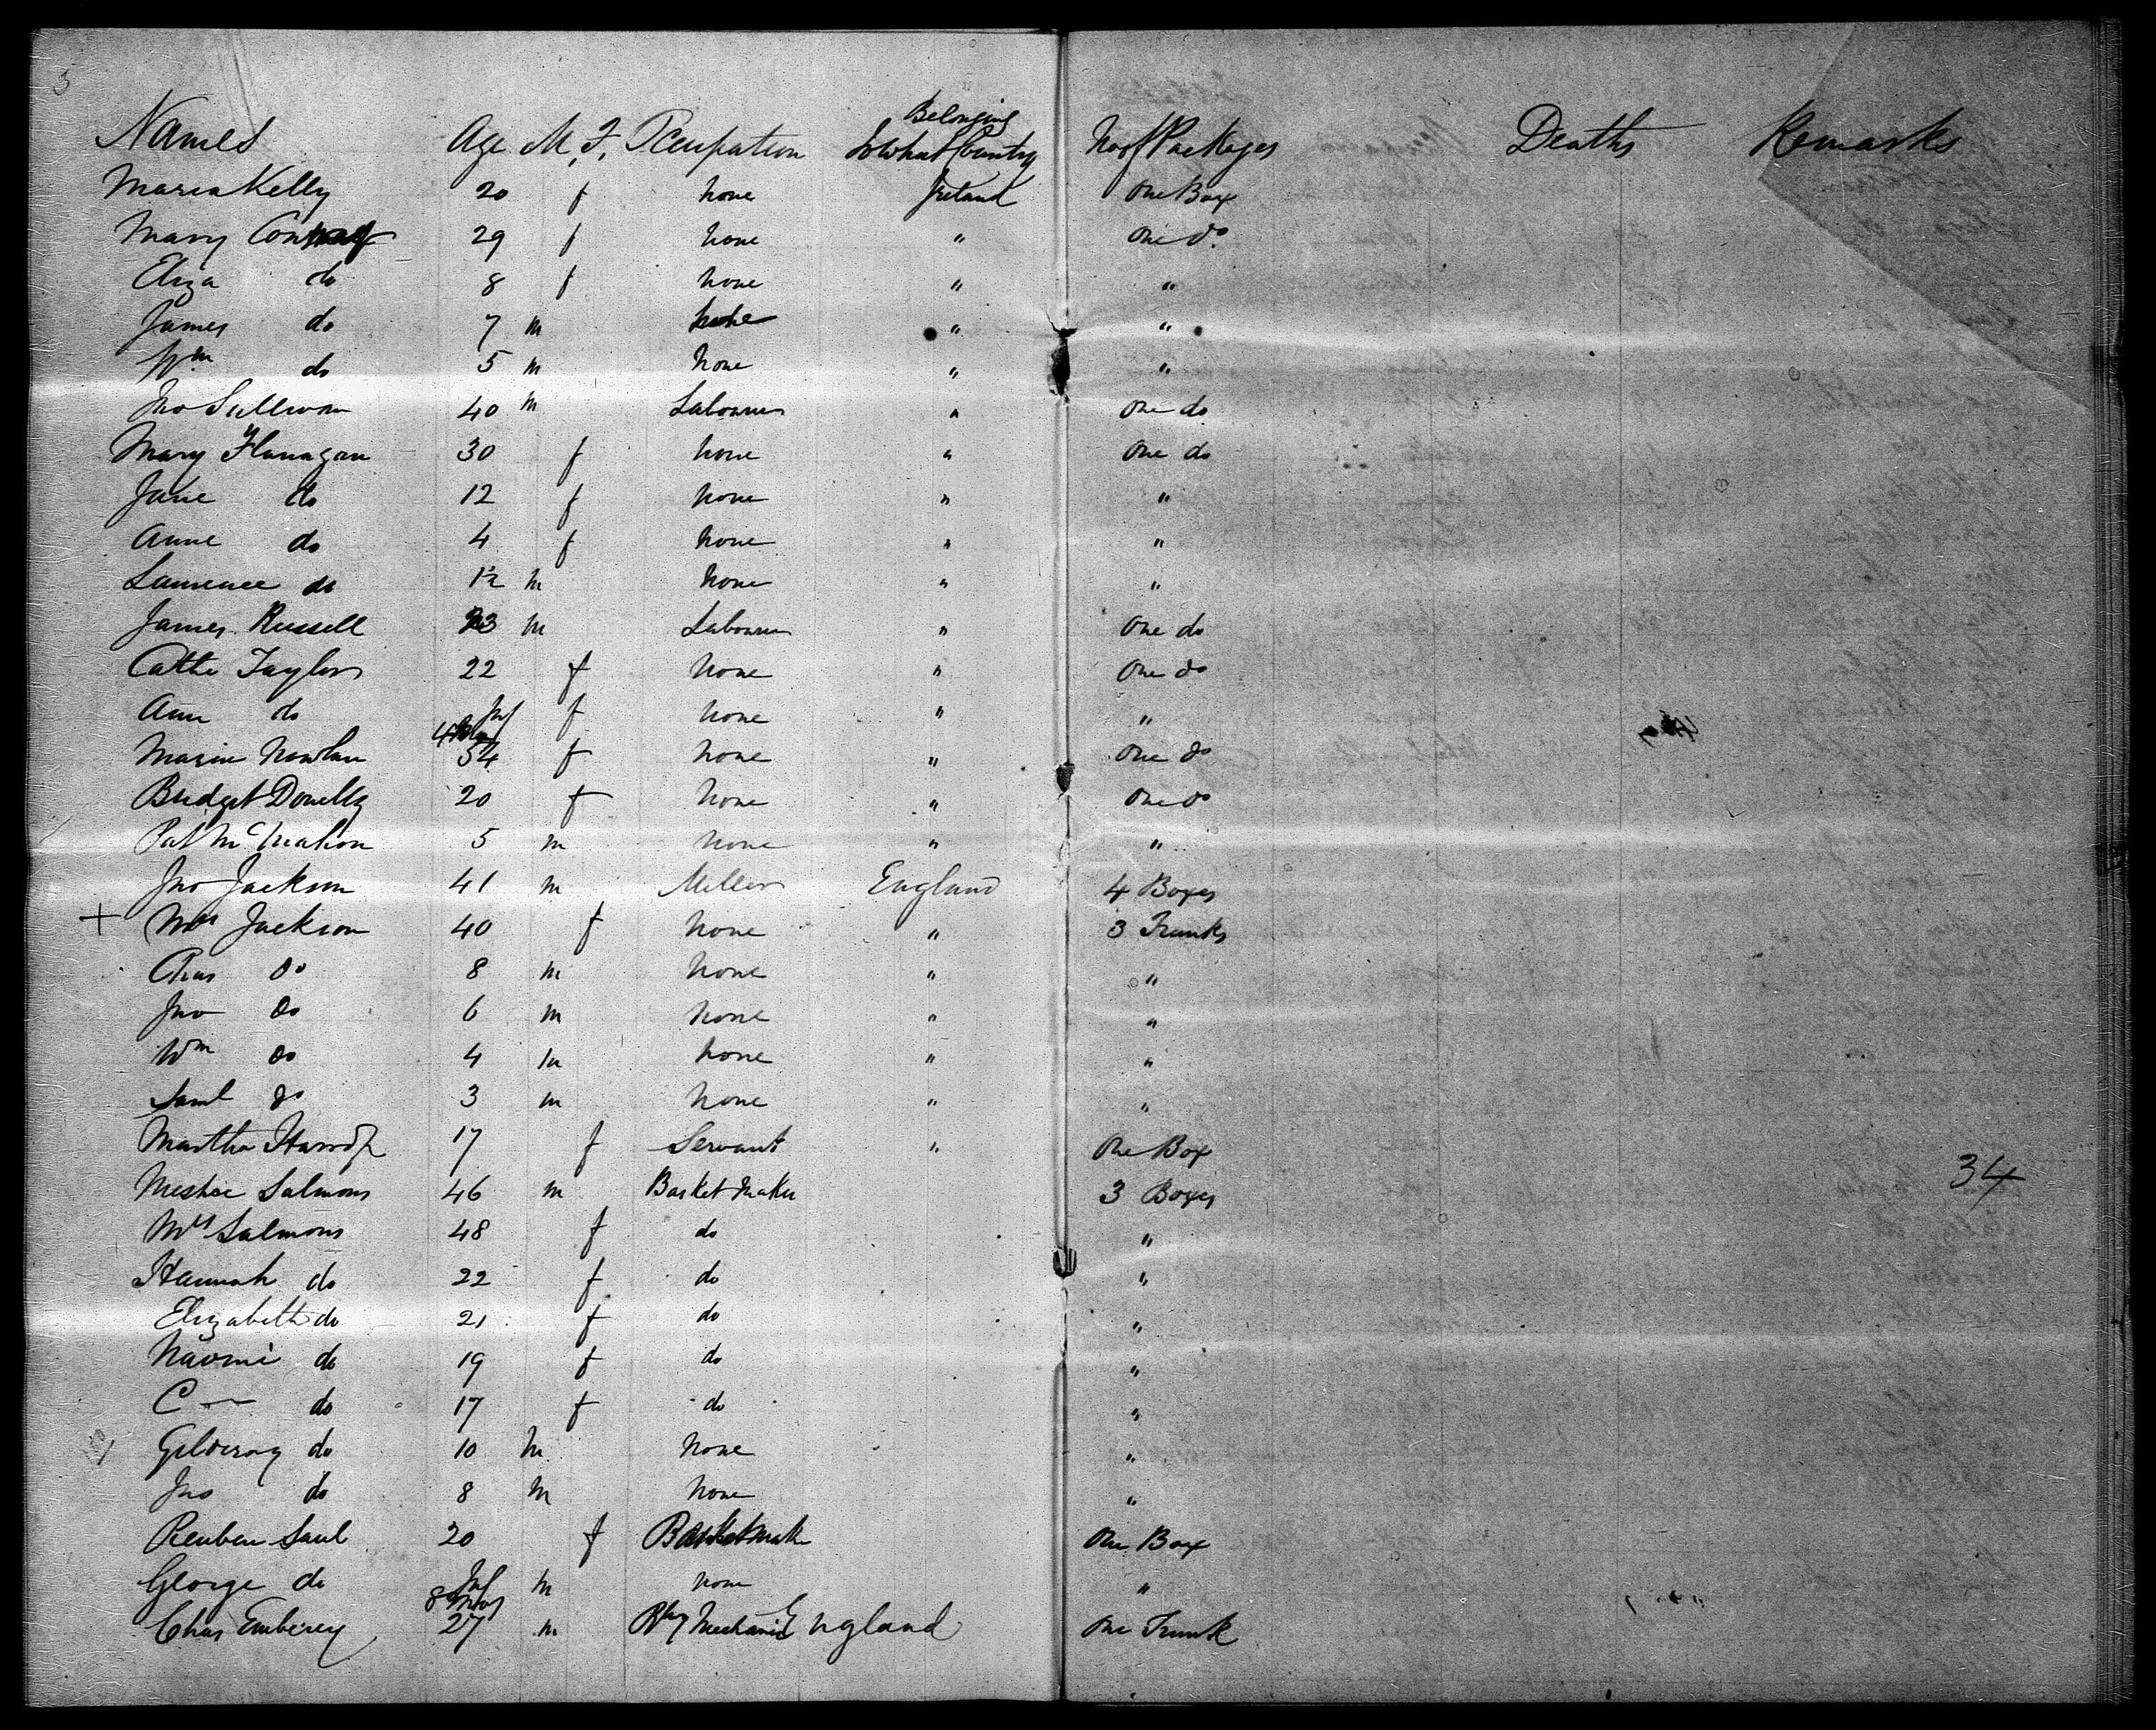 3
Names Age M. F. Occupation Belonging To What Country No of Packages Deaths Remarks
Maria Kelly 20 f none Ireland One Box
Mary 29 f none " One do
Eliza do 8 f none " "
James do 7 m none " "
Wm do 5 m none " "
Jno Sullivan 40 m Labourer " One do
Mary Flanagan 30 f none " One do
Jane do 12 f none " "
Anne do 4 f none " "
Laurence do 1½ m none " "
James Russell 23 m Labourer " One do
Cathe Taylor 22 f none " One do
Ann do Inf 4 f none " "
Maria Nowlan 54 f none " One do
Bridget Donelly 20 f none " One do
Pat McMahon 5 m none " "
Jno Jackson 41 m Miller England 4 Boxes
+ Mrs Jackson 40 f none " 3 Trunks
Chas do 8 m none " "
Jno do 6 m none " "
Wm do 4 m none " "
Saml do 3 m none " "
Martha 17 f Servant " One Box
Salmons 46 m Basket Maker 3 Boxes 34
Mrs Salmons 48 f do "
Hannah do 22 f do "
Elizabeth do 21 f do "
Naomi do 19 f do "
C do 17 f do "
Gilderoy do 10 m none "
Jno do 8 m none "
Reuben Saul 20 f Basket Mak One Box
George do Inf 8 Mos m none "
Chas Emberey 27 m Mechanic England One Trunk